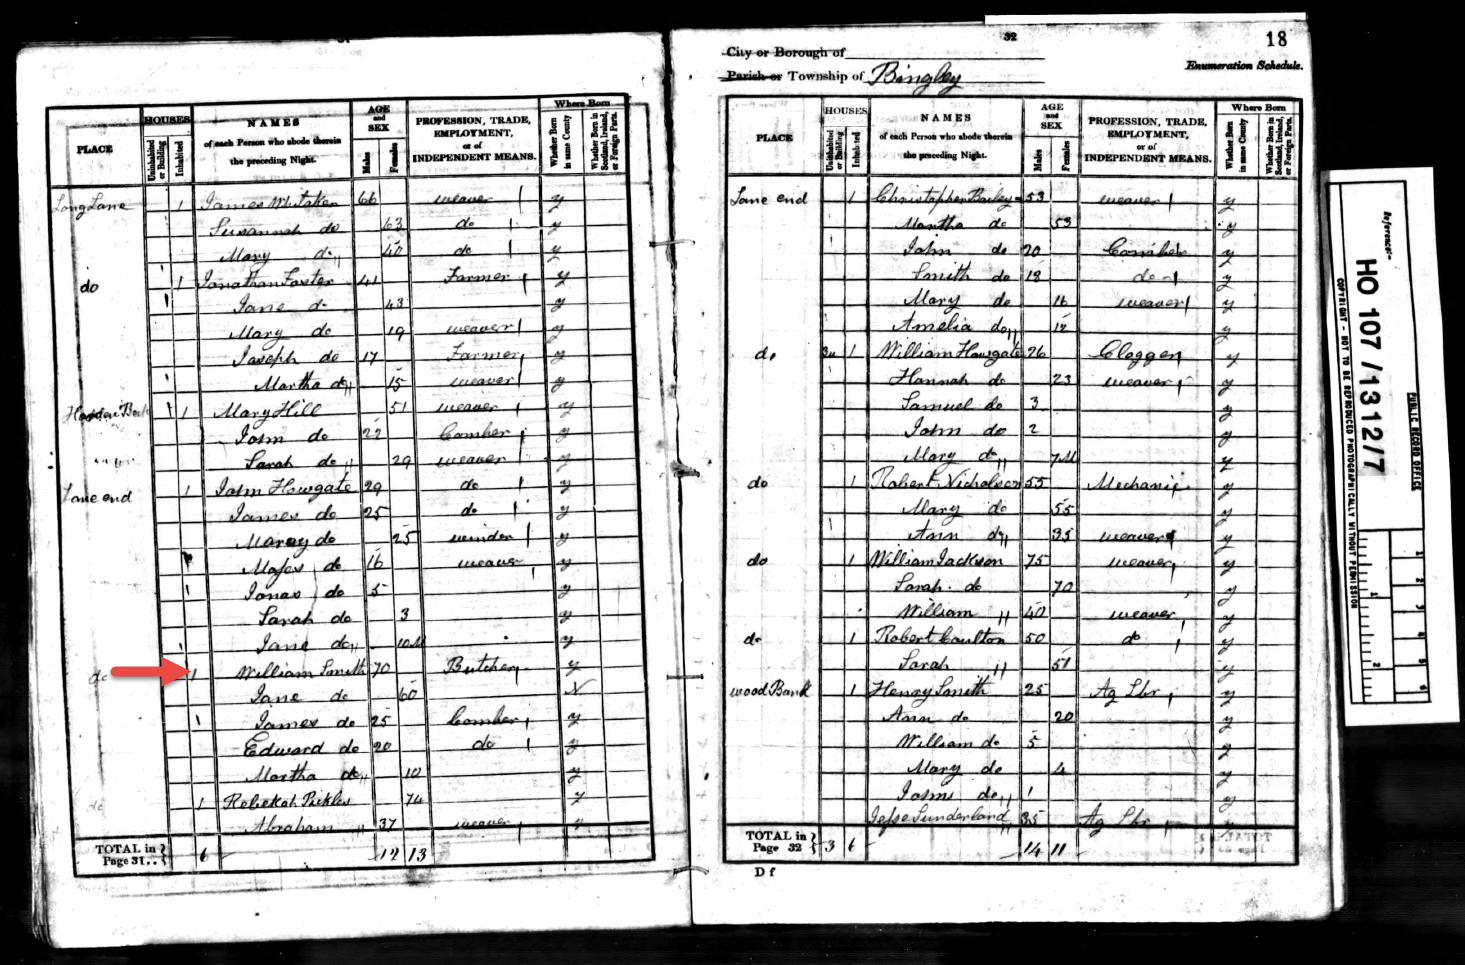 City or Borough of
32
18
Enumeration Schedule.
Parish or Township of Bingley
PLACE
HOUSES
Uninhabited or Building
Inhabited
NAMES
of each Person who abode therein the preceding Night.
AGE and SEX
Males
Females
PROFESSION, TRADE, EMPLOYMENT, or of INDEPENDENT MEANS.
Where Born
Whether Born in same County
Whether Born in Scotland, Ireland, or Foreign Parts.
Long Lane 1 James Whitaker 66 weaver y
Susannah do 63 do y
Mary do 40 do y
do 1 Jonathan Foster 41 Farmer y
Jane do 43 y
Mary do 19 weaver y
Joseph do 17 Farmer y
Martha do 15 weaver y
1 Mary Hill 51 weaver y
John do 22 Comber y
Sarah do 29 weaver y
Lane end 1 John Howgate 29 do y
James do 25 do y
Marey do 25 winder y
Moses do 16 weaver y
Jonas do 5 y
Sarah do 3 y
Jane do 10M y
do 1 William Smith 70 Butcher y
Jane do 60 N
James do 25 Comber y
Edward do 20 do y
Martha do 10 y
do 1 Rebekah Pickles 74 y
Abraham 37 weaver y
TOTAL in Page 31.. 6 12 13
PLACE
HOUSES
Uninhabited or Building
Inhabited
NAMES
of each Person who abode therein the preceding Night.
AGE and SEX
Males
Females
PROFESSION, TRADE, EMPLOYMENT, or of INDEPENDENT MEANS.
Where Born
Whether Born in same County
Whether Born in Scotland, Ireland, or Foreign Parts.
Lane end 1 Christopher Bailey 53 weaver y
Martha do 53 y
John do 20 Comber y
Smith do 18 do y
Mary do 16 weaver y
Amelia do 12 y
do 3u 1 William Howgate 26 Clogger y
Hannah do 23 weaver y
Samuel do 3 y
John do 2 y
Mary do 7M y
do 1 Robert Nicholson 55 Mechanic y
Mary do 55 y
Ann do 35 weaver y
do 1 William Jackson 75 weaver y
Sarah do 70 y
William 40 weaver y
do 1 Robert Coulton 50 do y
Sarah 51 y
wood Bank 1 Henry Smith 25 Ag Lbr y
Ann do 20 y
William do 5 y
Mary do 4 y
John do 1 y
Jesse Sunderland 35 Ag Lbr y
TOTAL in Page 32 3 6 14 11
D f
Reference:-
HO 107/1312/7
PUBLIC RECORD OFFICE
COPYRIGHT - NOT TO BE REPRODUCED PHOTOGRAPHICALLY WITHOUT PERMISSION